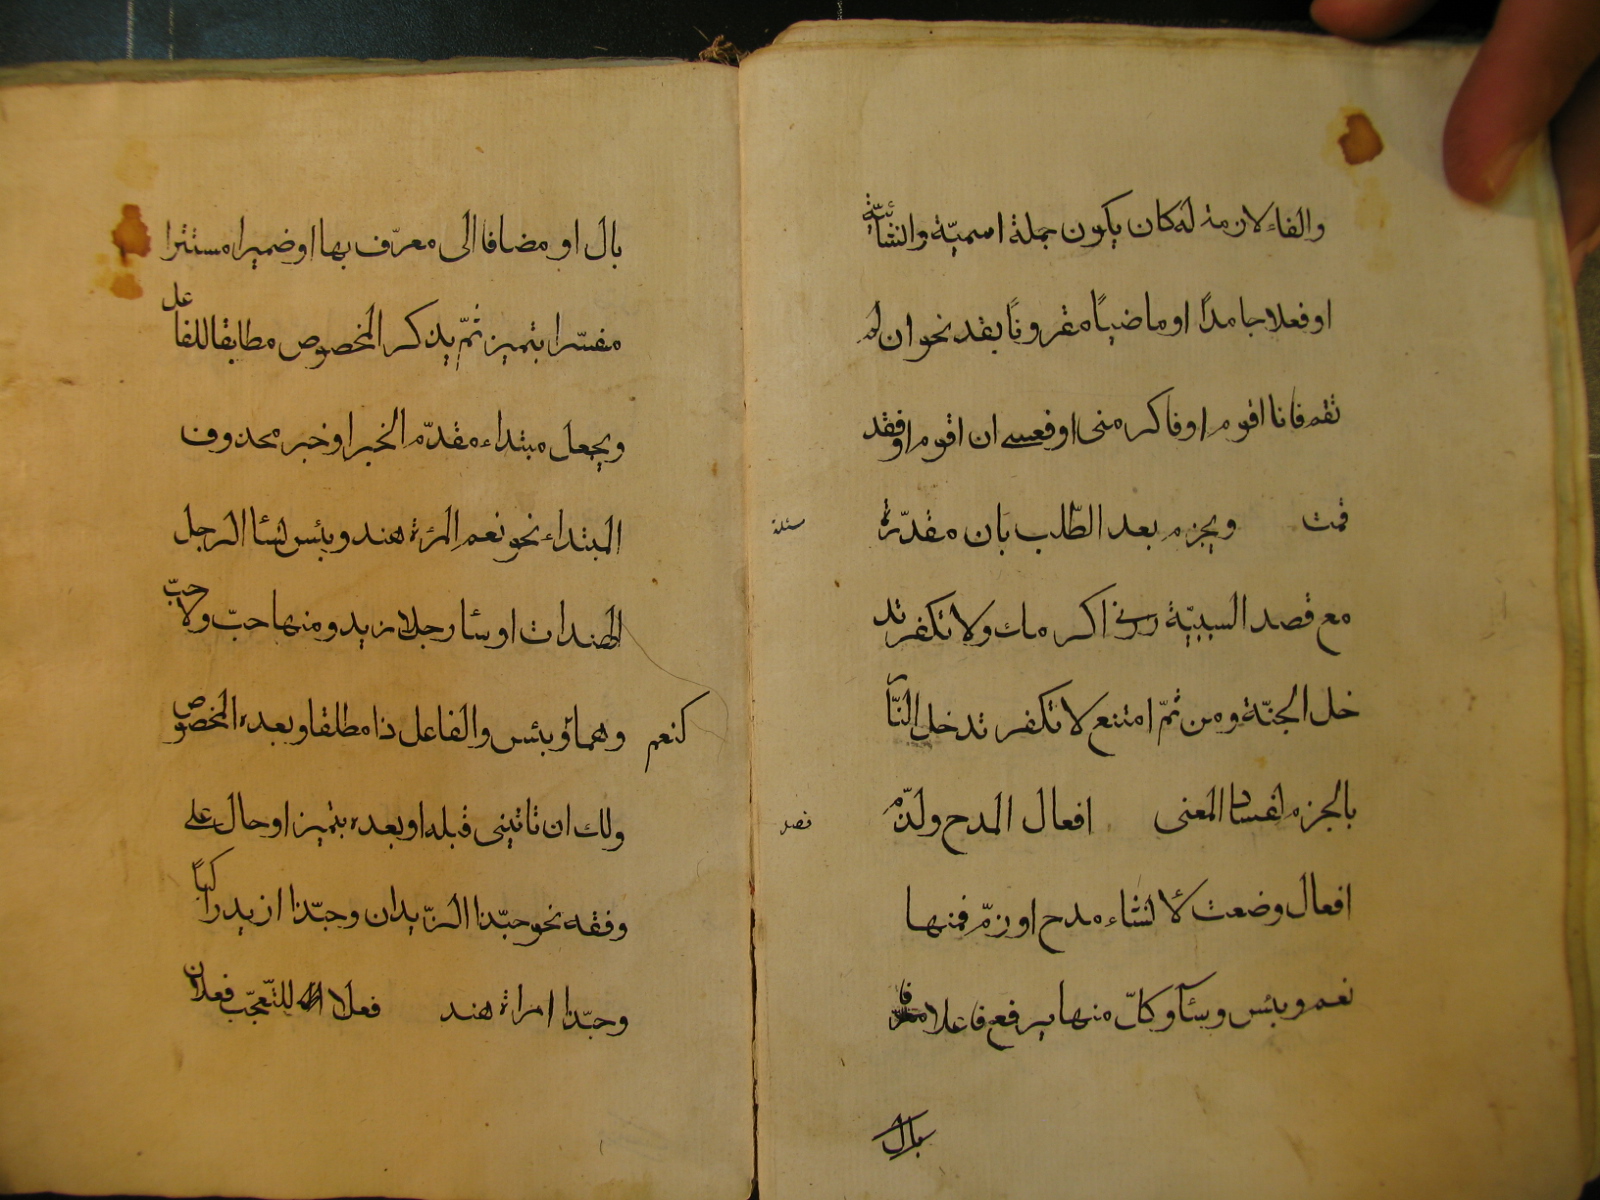 والفاء لازمة له كان يكون جملة اسميّة وانشائيّة
او فعلا جامدًا او ماضيًا مقرونًا بقد نحو ان لم
تقم فانا اقوم او فاكرمنى او فعسى ان اقوم او فقد
قمت ويجزم بعد الطّلب بان مقدّرة
مسئلة
مع قصد السببيّة زرنى اكرمك ولا تكفر تد
خل الجنّة ومن ثمّ امتنع لا تكفر تدخل النّار
بالجزم لفساد المعنى افعال المدح ولذّم
فصل
افعال وضعت لانشاء مدح او زمّ فمنها
نعم وبئس وسآء وكلّ منها يرفع فاعلا معرّفا
بال
بال او مضافا الى معرّف بها او ضميرا مستترا
مفسّرا بتميز ثمّ يذكر المخصوص مطابقا للفاعل
ويجعل مبتداء مقدّم الخبر او خبر محذوف
المبتداء نحو نعم المرئة هند وبئس نسئا الرجل
الهندات او سئا رجلا زيد ومنها حبّ ولا حبّ
وهما وبئس والفاعل ذا مطلقا وبعده المخصوص
كنعم
ولك ان تاتينى قبله او بعده بتميز او حال على
وفقه نحو حبّذا الزّيدان وحبّذا زيد راكبًا
وحبّذا امراة هند فعلا للتّعجّب فعلان